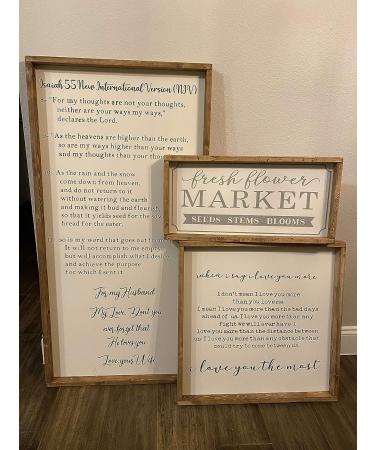 Isaiah 55 New International Version (NIV)
8 "For my thoughts are not your thoughts,
neither are your ways my ways,"
declares the Lord.
9 "As the heavens are higher than the earth,
so are my ways higher than your ways
and my thoughts than your though
10 As the rain and the snow
come down from heaven,
and do not return to it
without watering the earth
and making it bud and flouris
so that it yields seed for the so
bread for the eater,
11 so is my word that goes out fro
It will not return to me empty,
but will accomplish what I desire
and achieve the purpose
for which I sent it.
For my Husband
My Love, Don't you
ever forget that
He loves you
Love your Wife
fresh flower
MARKET
SEEDS STEMS BLOOMS
when i say i love you more
I don't mean I love you more
than you love me
I mean I love you more than the bad days
ahead of us I love you more than any
fight we will ever have I
love you more than the distance between
us I love you more than any obstacle that
could try to come between us.
i love you the most